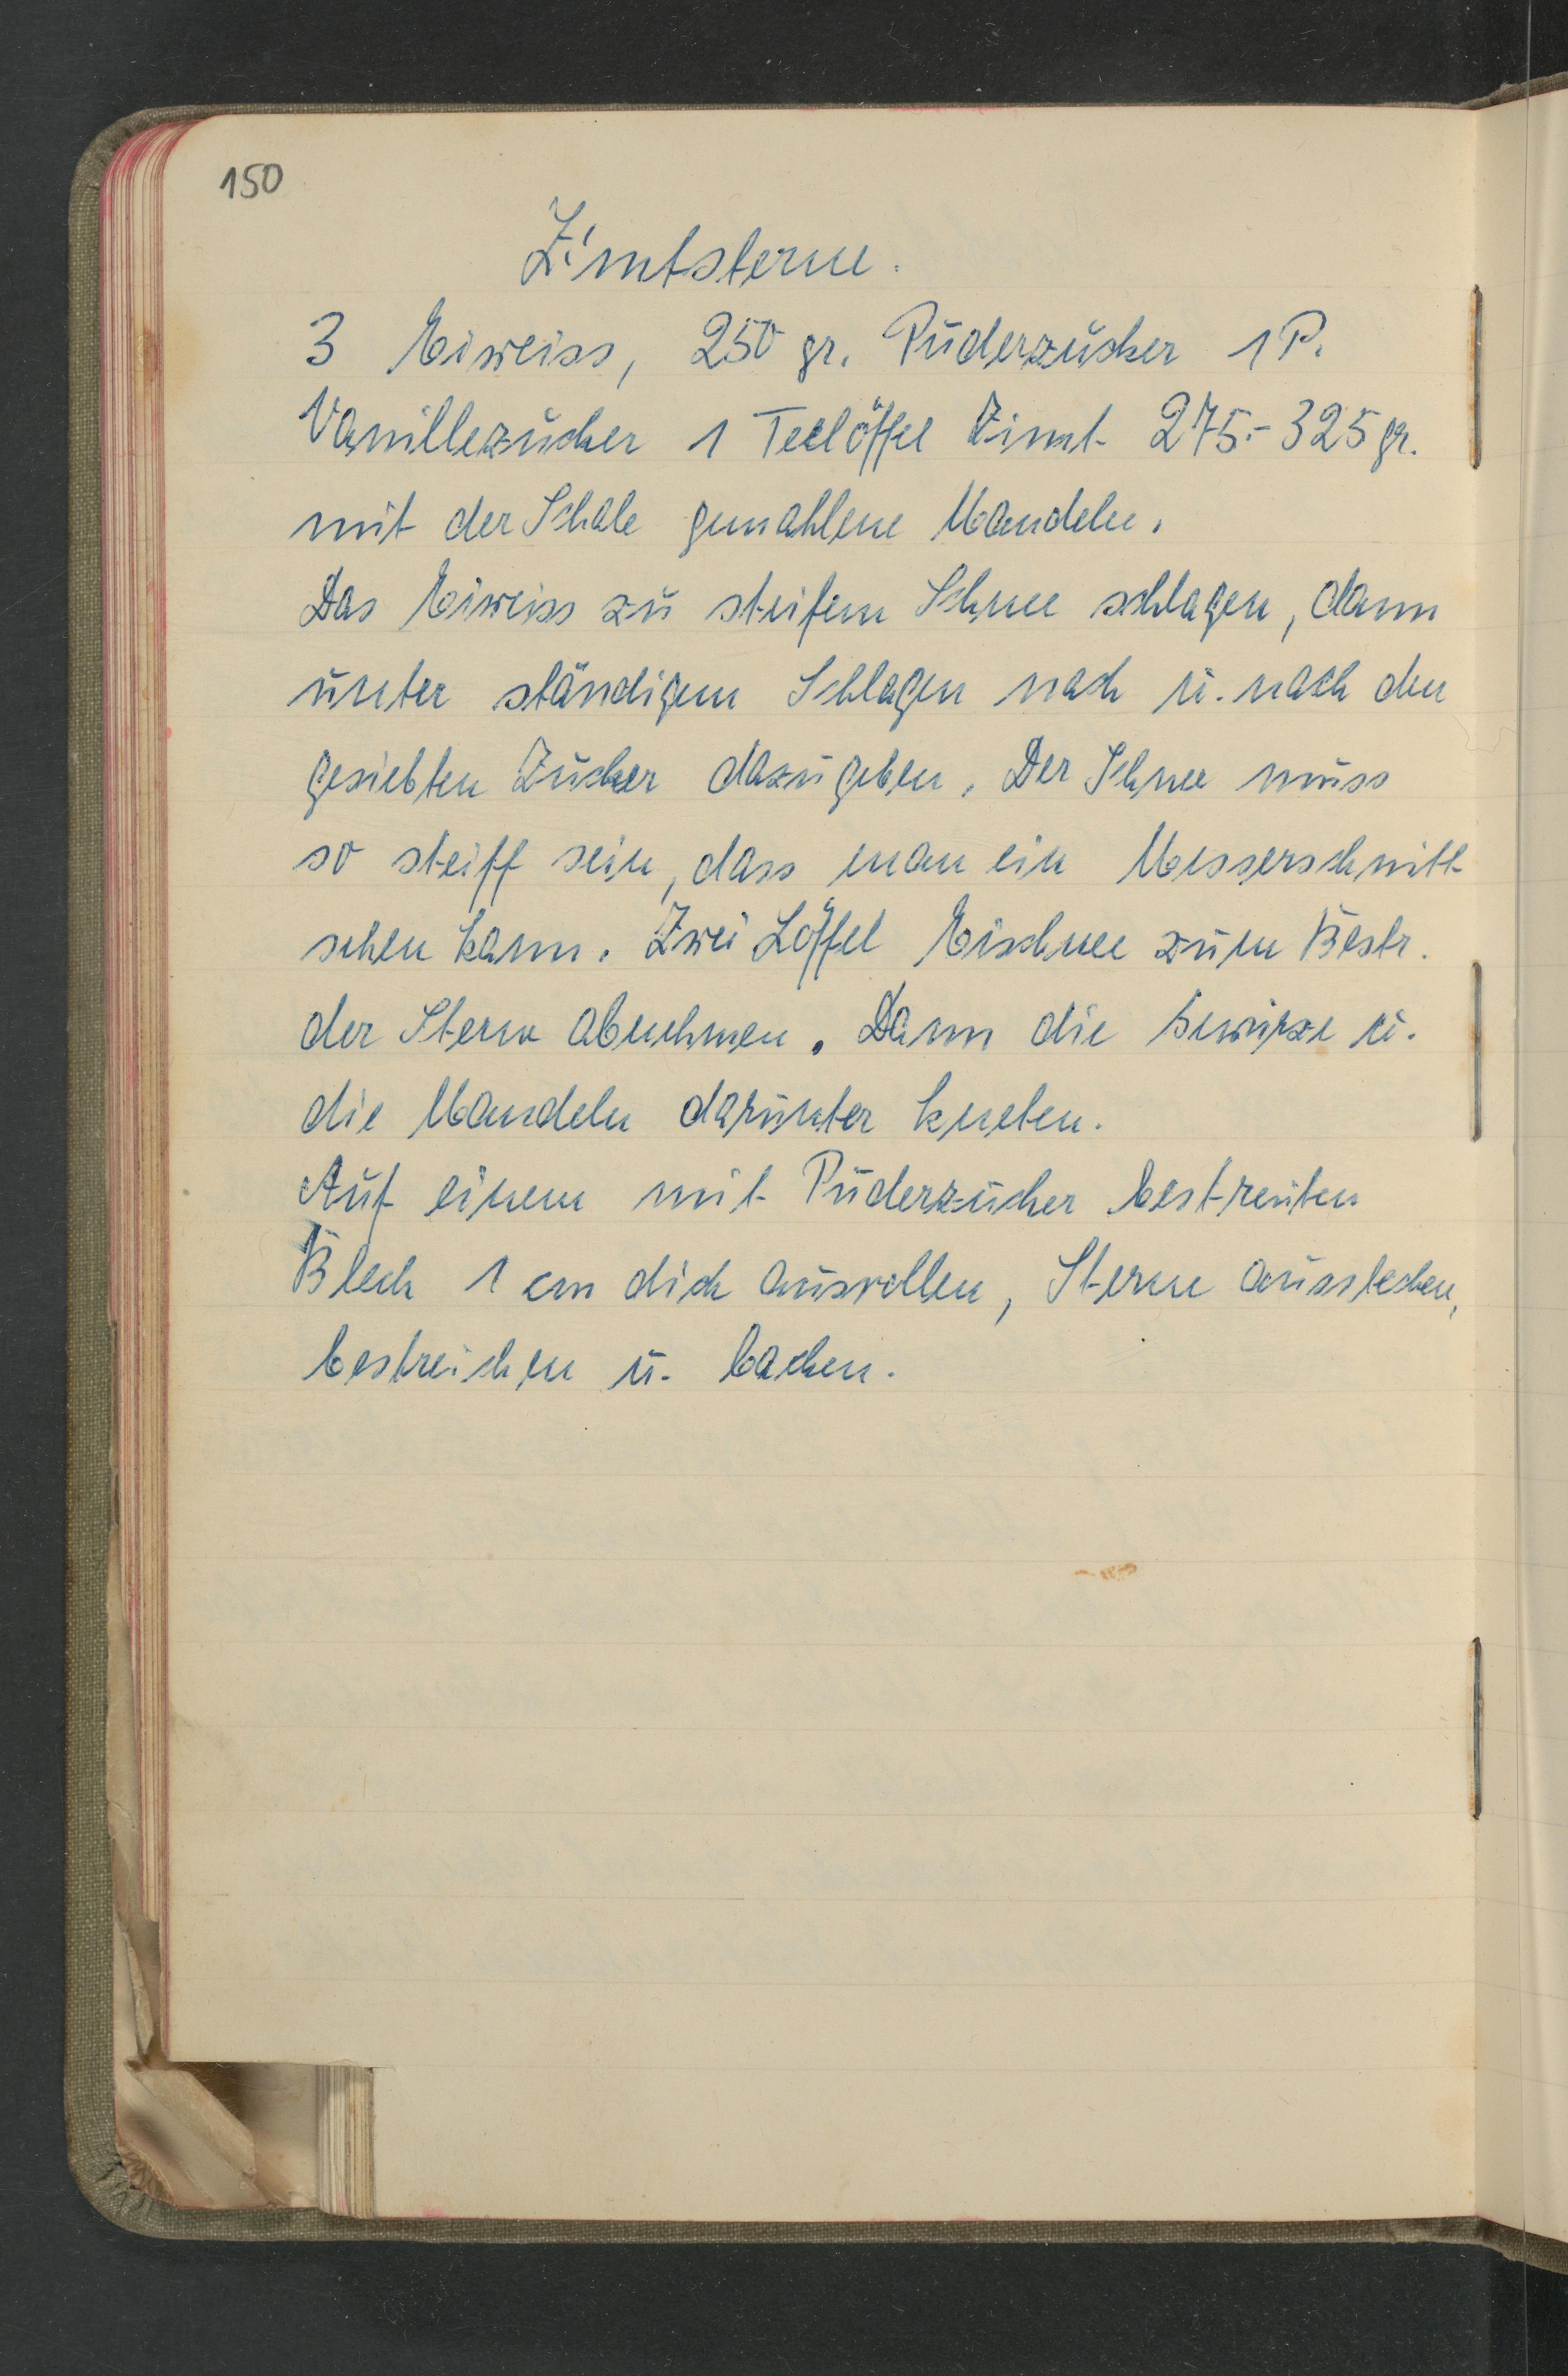 150
Zimtsterne.
3 Eiweiss, 250 gr. Puderzucker 1 P.
Vanillezucker 1 Teelöffel Zimt 275.-325 gr.
mit der Schale gemahlene Mandeln.
Das Eiweiss zu steifem Schnee schlagen, dann
unter ständigem Schlagen nach u. nach den
gesiebten Zucker dazugeben. Der Schnee muss
so steiff sein, dass man ein Messerschnitt
sehen kann. Zwei Löffel Eischnee zum Bestr.
der Sterne abnehmen. Dann die Gewürze u.
die Mandeln darunter kneten.
Auf einem mit Puderzucker bestreuten
Blech 1 cm dick ausrollen, Sterne ausstechen,
bestreichen u. backen.